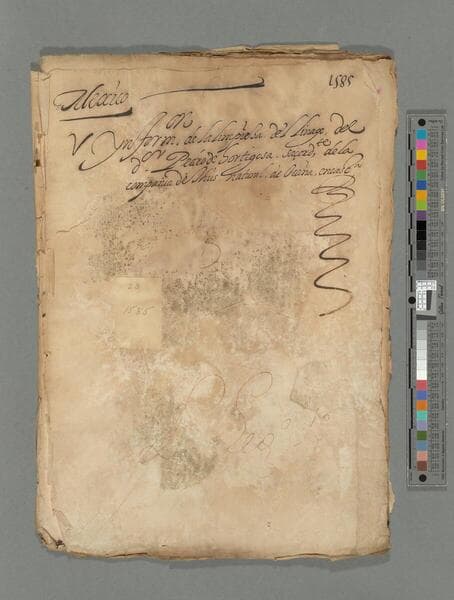 Mexico
1585
V Ynform.on de la limpieza del linage del
d.or Pedro de hortigosa. sacerd.te de la
compañia de Jhus natural de Ocaña, en cast.a
23
1585